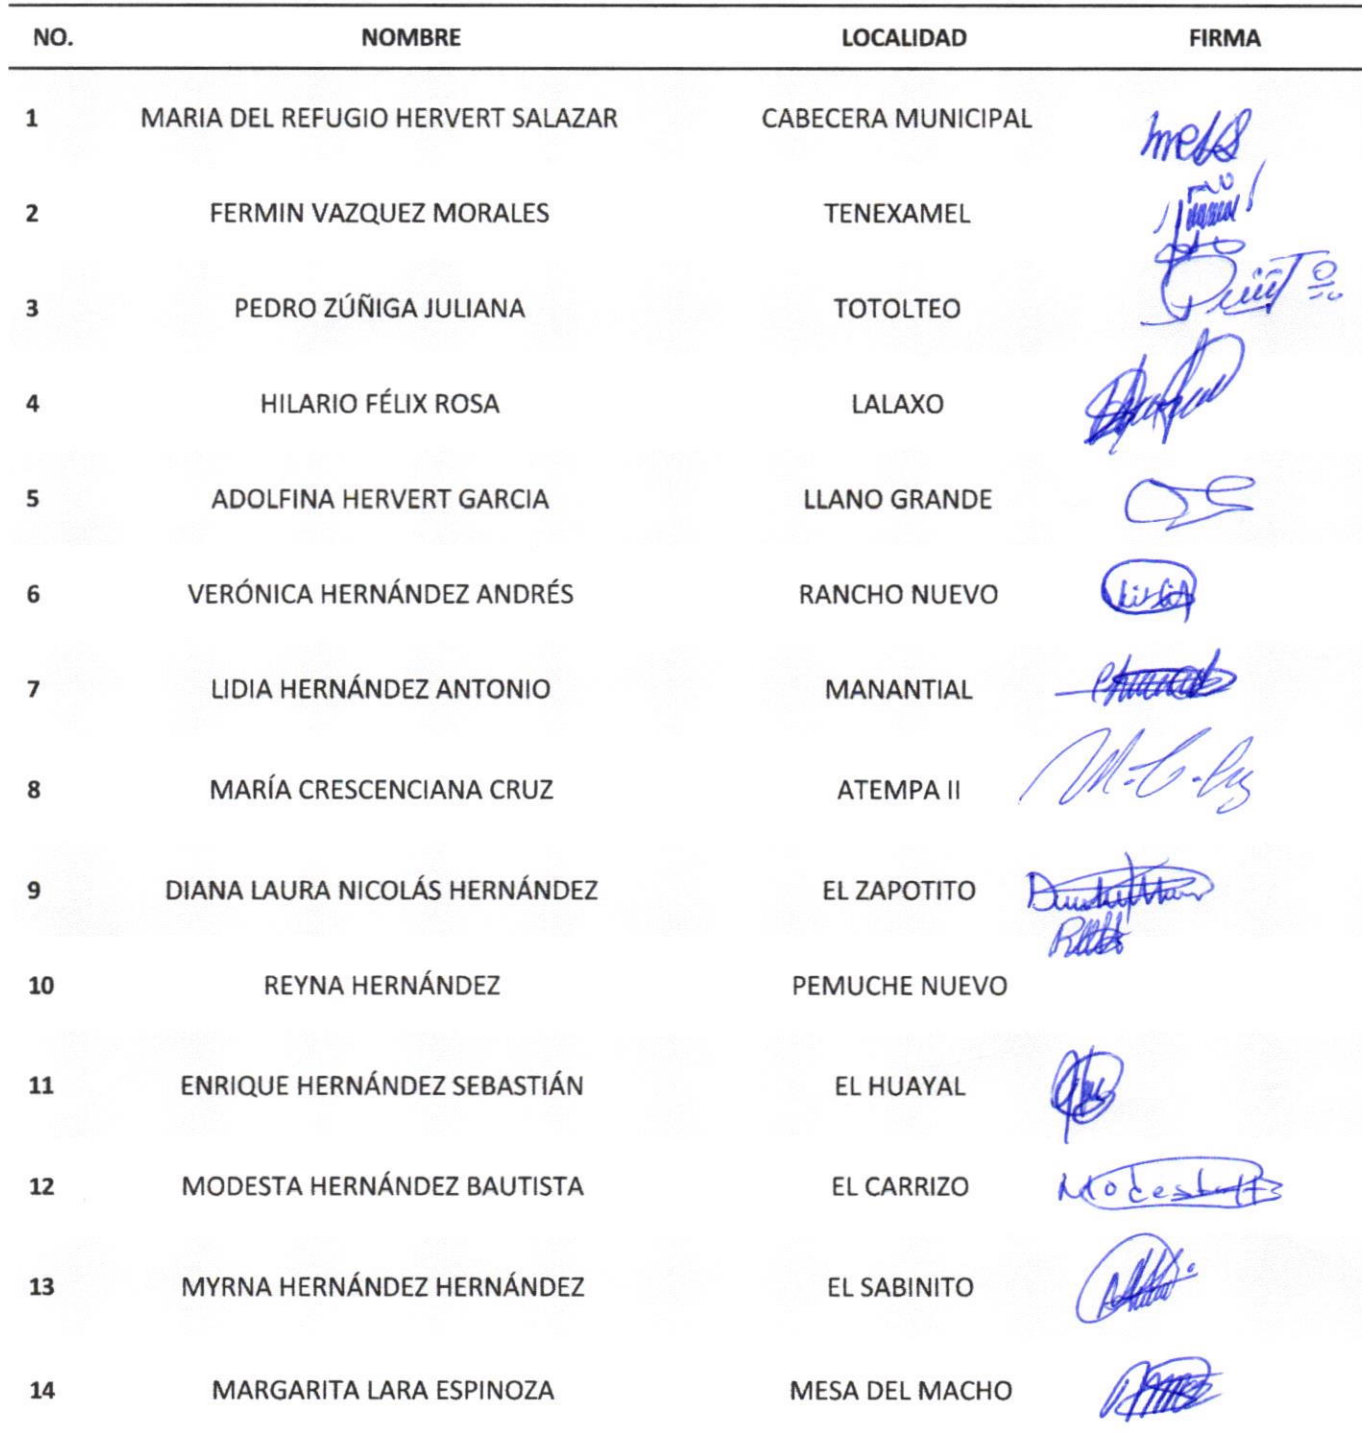 NO. NOMBRE LOCALIDAD FIRMA
1 MARIA DEL REFUGIO HERVERT SALAZAR CABECERA MUNICIPAL
2 FERMIN VAZQUEZ MORALES TENEXAMEL
3 PEDRO ZÚÑIGA JULIANA TOTOLTEO
4 HILARIO FÉLIX ROSA LALAXO
5 ADOLFINA HERVERT GARCIA LLANO GRANDE
6 VERÓNICA HERNÁNDEZ ANDRÉS RANCHO NUEVO
7 LIDIA HERNÁNDEZ ANTONIO MANANTIAL
8 MARÍA CRESCENCIANA CRUZ ATEMPA II
9 DIANA LAURA NICOLÁS HERNÁNDEZ EL ZAPOTITO
10 REYNA HERNÁNDEZ PEMUCHE NUEVO
11 ENRIQUE HERNÁNDEZ SEBASTIÁN EL HUAYAL
12 MODESTA HERNÁNDEZ BAUTISTA EL CARRIZO Modesta
13 MYRNA HERNÁNDEZ HERNÁNDEZ EL SABINITO
14 MARGARITA LARA ESPINOZA MESA DEL MACHO